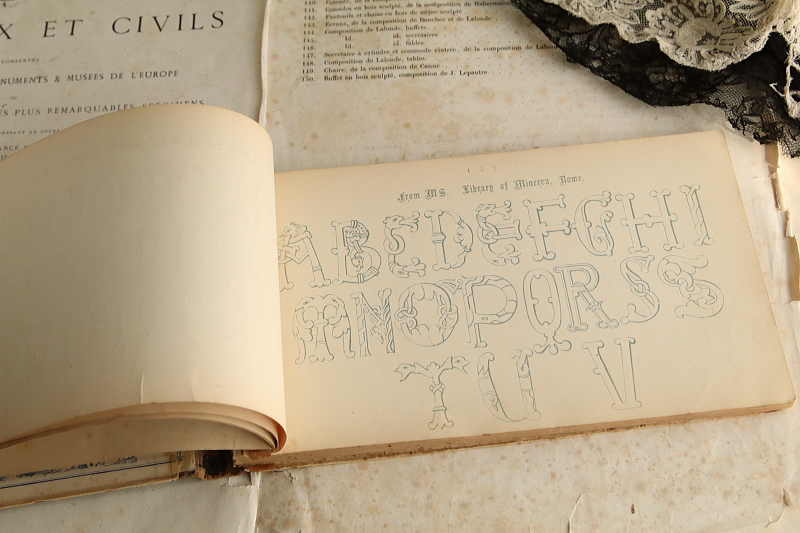 X ET CIVILS
CONSERVÉS
NUMENTS & MUSEES DE L'EUROPE
PLUS REMARQUABLES SPECIMENS
142.
143. Écrans, de la composition de Boucher et de Lalonde.
144. Composition de Lalonde, buffets.
145. Id. id. secrétaires
146. Id. id. tables.
147. Secrétaire à cylindre et commode rentrée, de la composition de Lalonde
148. Composition de Lalonde, tables.
149. Chaire, de la composition de
150. Buffet en bois sculpté, composition de J. Lepautre.
From MS. Library of Minerva, Rome.
A B C E D E F G H I
M N O P Q R S S
T U V